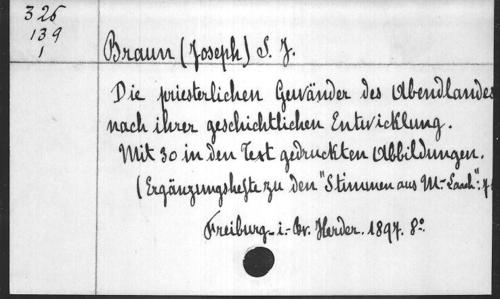 326
139
1
Braun (Joseph) S. J.
Die priesterlichen Gewänder des Abendlandes
nach ihrer geschichtlichen Entwicklung.
Mit 30 in den Text gedruckten Abbildungen.
(Ergänzungshefte zu den "Stimmen aus M.-Laach":
Freiburg-i.-Br. Herder. 1897. 8º.